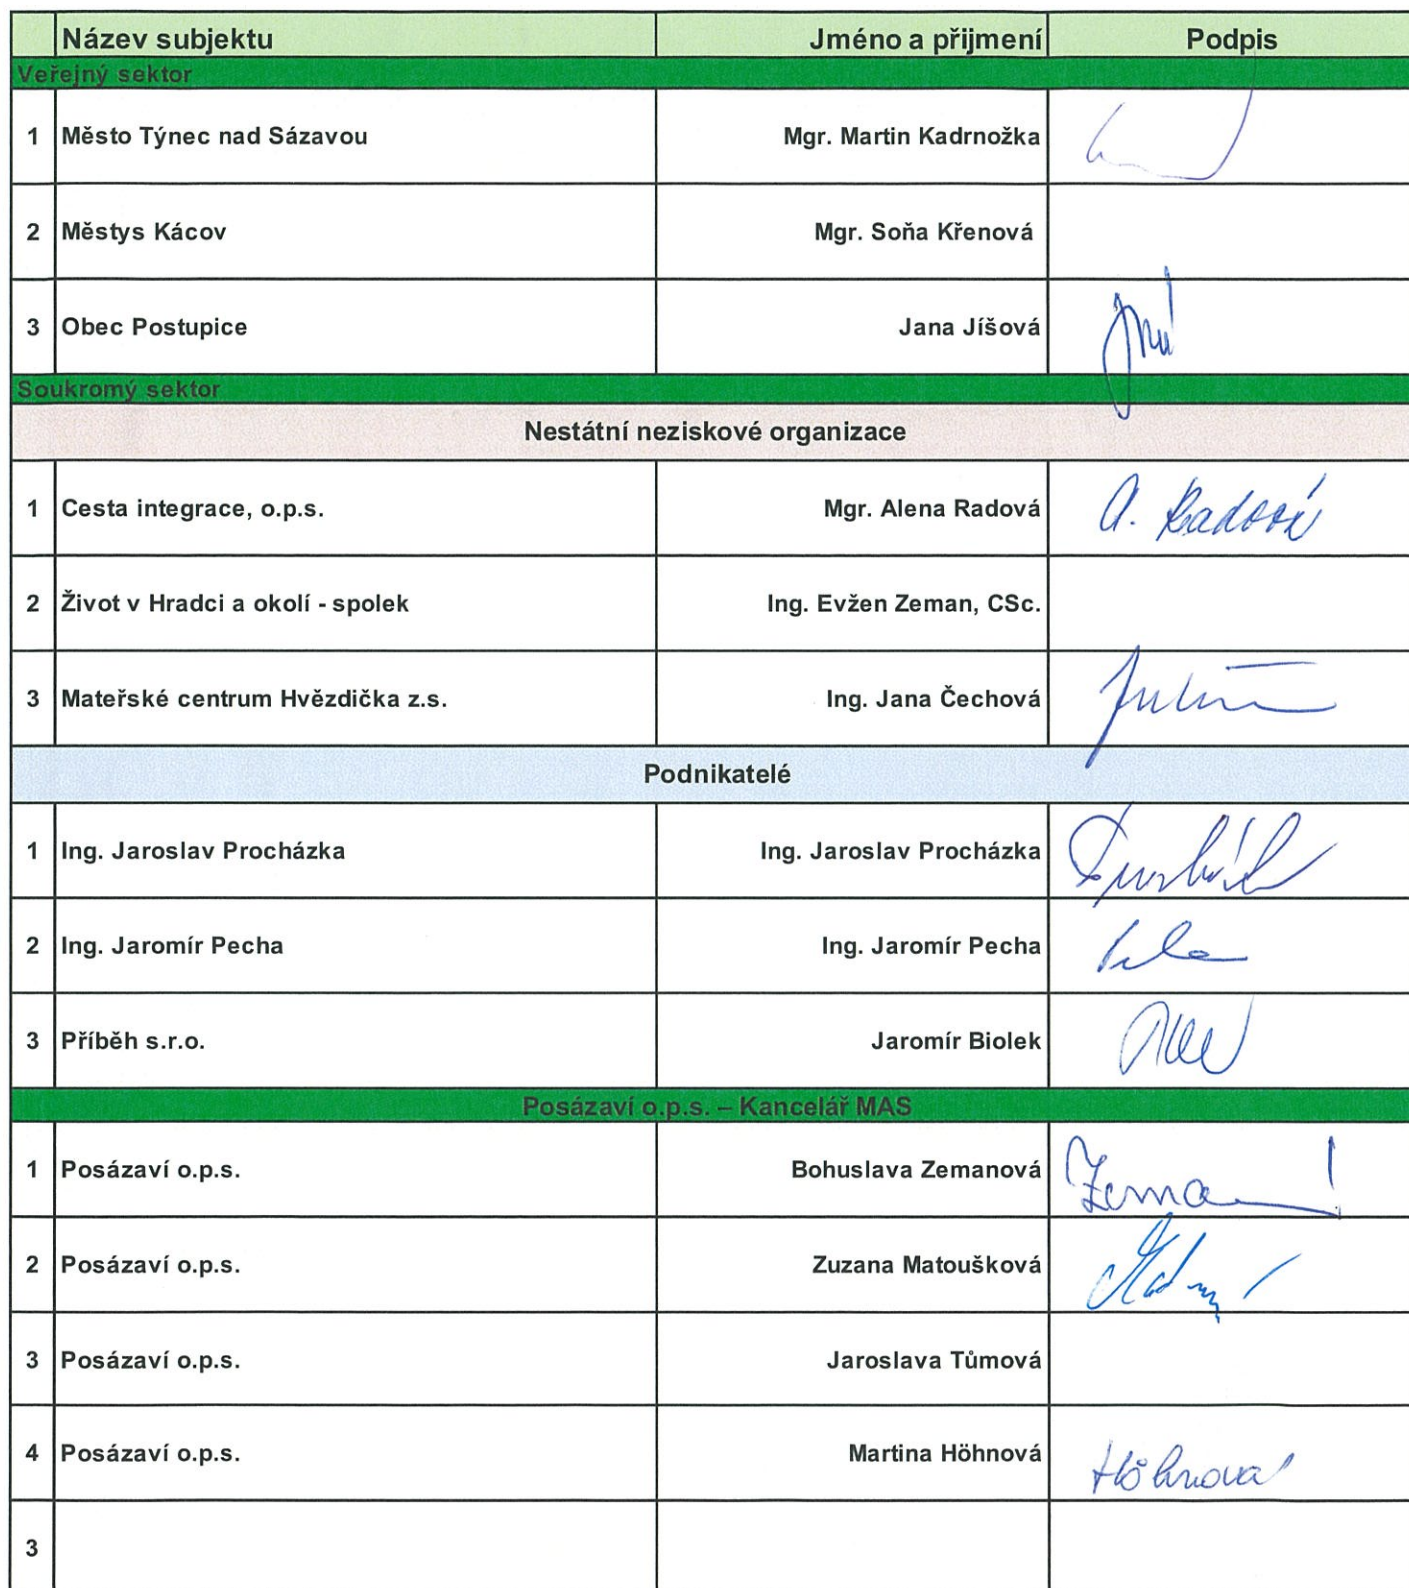 Název subjektu Jméno a přijmení Podpis
Veřejný sektor
1 Město Týnec nad Sázavou Mgr. Martin Kadrnožka
2 Městys Kácov Mgr. Soňa Křenová
3 Obec Postupice Jana Jíšová
Soukromý sektor
Nestátní neziskové organizace
1 Cesta integrace, o.p.s. Mgr. Alena Radová A. Radová
2 Život v Hradci a okolí - spolek Ing. Evžen Zeman, CSc.
3 Mateřské centrum Hvězdička z.s. Ing. Jana Čechová
Podnikatelé
1 Ing. Jaroslav Procházka Ing. Jaroslav Procházka
2 Ing. Jaromír Pecha Ing. Jaromír Pecha
3 Příběh s.r.o. Jaromír Biolek
Posázaví o.p.s. – Kancelář MAS
1 Posázaví o.p.s. Bohuslava Zemanová
2 Posázaví o.p.s. Zuzana Matoušková
3 Posázaví o.p.s. Jaroslava Tůmová
4 Posázaví o.p.s. Martina Höhnová Höhnová
3